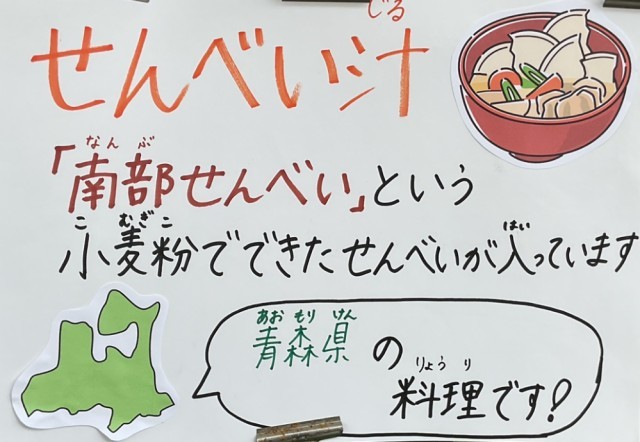 じる
せんべい汁
なんぶ
「南部せんべい」という
こむぎこ はい
小麦粉でできたせんべいが入っています
あおもりけん
青森県の
りょうり
料理です!